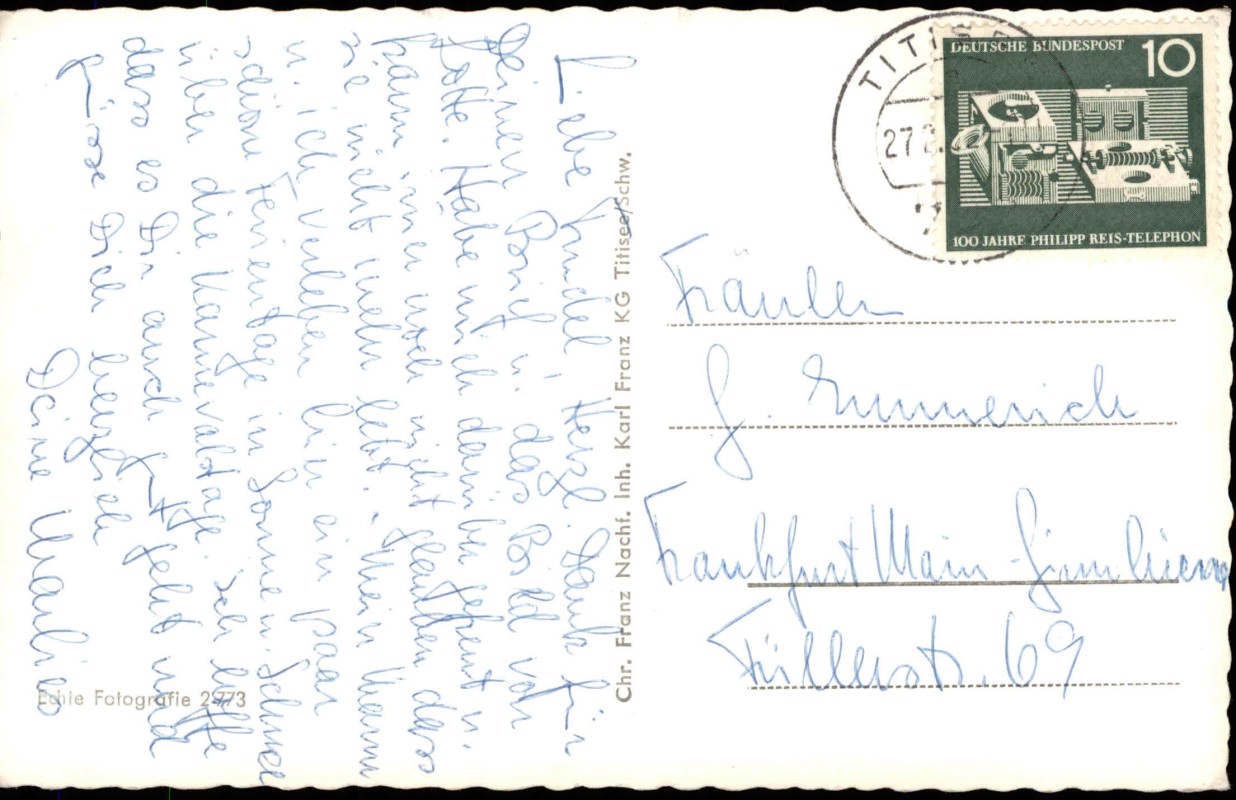 Liebe Gundel! Herzl. Dank für
Deinen Brief u. das Bild von
Lotte. Habe mich darüber gefreut u.
kann immer noch nicht glauben dass
sie nicht mehr lebt. Mein Mann
u. ich verleben hier ein paar
schöne Ferientage in Sonne u. Schnee
über die Karnevaltage. Ich hoffe
dass es Dir auch gut geht und
grüsse Dich herzlich
Deine Marlies
Echte Fotografie 2773
Chr. Franz Nachf. Inh. Karl Franz KG Titisee/Schw.
TITISEE
27.2.
DEUTSCHE BUNDESPOST 10
100 JAHRE PHILIPP REIS-TELEPHON
Fräulein
G. Emmerich
Frankfurt Main-Ginnheim
Füllerstr. 69